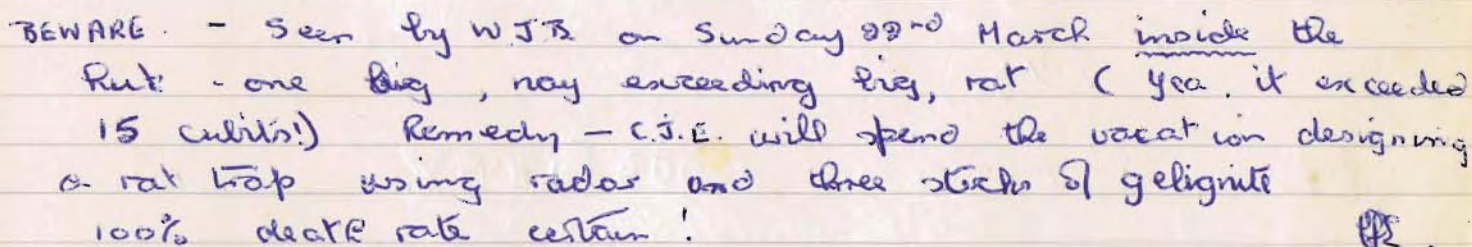 BEWARE. - Seen by WJB on Sunday 22nd March inside the
hut - one big, nay exceeding big, rat (Yea, it exceeded
15 cubits!) Remedy - C.J.E. will spend the vacation designing
a rat trap using radar and three sticks of gelignite
100% death rate certain!